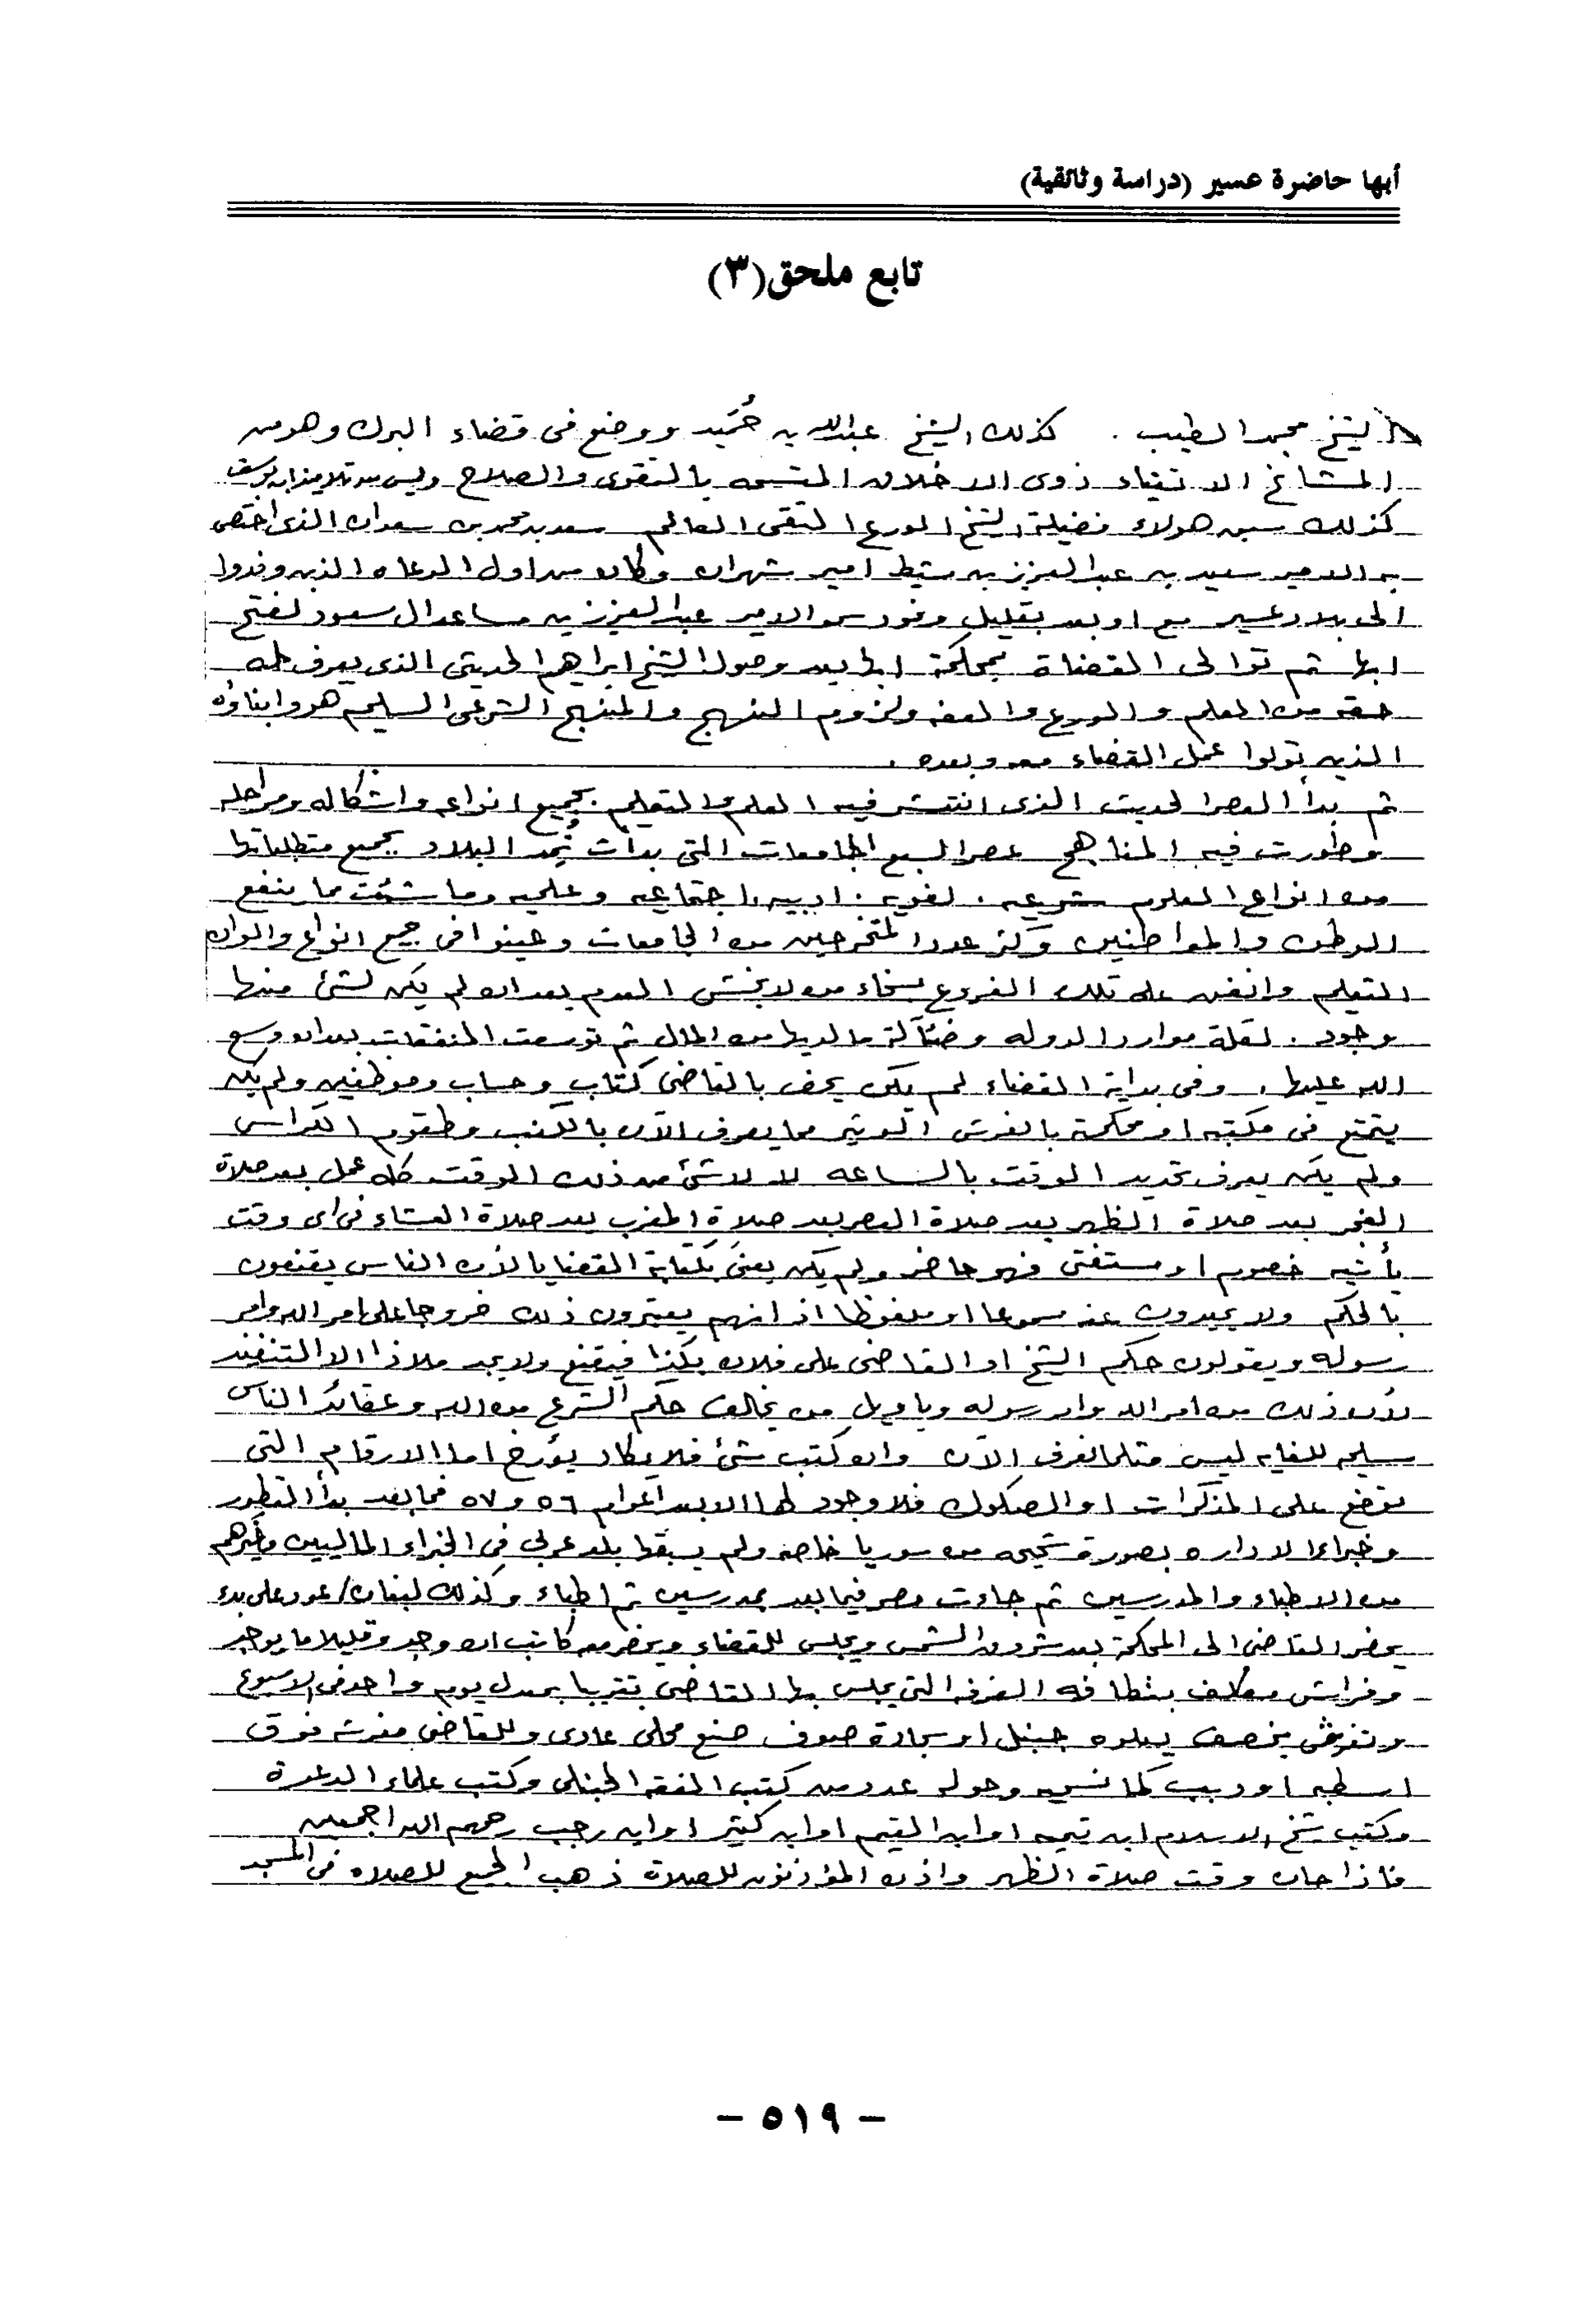 أبها حاضرة عسير (دراسة وثائقية)
تابع ملحق (٣)
الشيخ محمد الطيب . كذلك الشيخ عبدالله بن حُمَيد ووضع فى قضاء البرك وهو من
المشائخ الاتقياء ذوى الاخلاق المتسمه بالتقوى والصلاح وليس من تلاميذ ابو يوسف
كذلك سبق هولاء فضيلة الشيخ الورع التقى العالم سعد بن محمد بن سعدان الذى اختص
به الامير سعيد بن عبدالعزيز بن مشيط امير شهران وكان من اول الدعاه الذين وفدوا
الى بلاد عسير مع او بعد بقليل وفود سمو الامير عبدالعزيز بن مساعد ال سعود لفتح
ابها ثم توالى القضاة بمحكمة ابها بعد وصول الشيخ ابراهيم الحديثى الذى يعرف له
حقه من العلم والورع والعفه ولزوم النهج والمنهج الشرعى السليم هو وابناؤه
الذين تولوا عمل القضاء معه وبعده .
ثم بدأ العصر الحديث الذى انتشر فيه العلم والتعليم بجميع انواعه واشكاله ومراحله
وطورت فيه المناهج عصر السبع الجامعات التى بدأت تُمِد البلاد بجميع متطلباتها
من انواع العلوم شرعيه . لغويه . ادبيه . اجتماعيه وعلميه وما شئت مما ينفع
الوطن والمواطنين وكثر عدد المتخرجين من الجامعات وعينوا فى جميع انواع والوان
التعليم وانفق على تلك الفروع بسخاء من لا يخشى العدم بعد ان لم يكن لشئ منها
وجود . لقلة موارد الدوله وضآلة ما لديها من المال ثم توسعت النفقات بعد ان وسع
الله عليها . وفى بداية القضاء لم يكن يحف بالقاضى كتاب وحساب وموظفين ولم يكن
يتمتع فى مكتبه او محكمة بالفرش الوثير مما يعرف الآن بالكنب وطقوم الكراسى
ولم يكن يعرف تحديد الوقت بالساعه لا لا شئ من ذلك الوقت كله عمل بعد صلاة
الفجر بعد صلاة الظهر بعد صلاة العصر بعد صلاة المغرب بعد صلاة العشاء فى اى وقت
يأتيه خصوم او مستفتى فهو حاضر ولم يكن يعنى بكتابة القضايا لأن الناس يقتنعون
بالحكم ولا يحيدون عنه مسموعا او ملفوظا اذ انهم يعتبرون ذلك خروجا على امر الله وامر
رسوله ويقولون حكم الشيخ او القاضى على فلان بكذا فيقتنع ولا يجد ملاذا الا التنفيذ
لأن ذلك من امر الله وامر رسوله وياويل من يخالف حكم الشرع من الله وعقائد الناس
سليمه للغايه ليس مثلما نعرف الآن وان كتب شئ فلا يكاد يؤرخ اما الارقام التى
توضع على المذكرات او الصكوك فلا وجود لها الا بعد اعوام ٥٦ و ٥٧ فما بعد بدأ التطور
وخبراء الاداره بصورة من سوريا خاصه ولم يسبقها بلد عربى فى الخبراء الماليين وغيرهم
من الاطباء والمدرسين ثم جاءت مصر فيما بعد بمدرسين ثم اطباء وكذلك لبنان / عود على بدء
يحضر القاضى الى المحكمة بعد شروق الشمس ويجلس للقضاء ويحضر معه كاتب ان وجد وقليلا ما يوجد
وفراش مكلف بنظافه الغرفه التى يجلس بها القاضى تقريبا بمعدل يوم واحد فى الاسبوع
وتفرش بخصف يعلوه جنبل او سجادة صوف صنع محلى عادى وللقاضى مفرشه فوق
او دبيب كما نسميه وحوله عدد من كتب الفقه الحنبلى وكتب علماء الدعوة
وكتب شيخ الاسلام ابن تيميه او ابن القيم او ابن كثير او ابن رجب رحمهم الله اجمعين
فاذا حان وقت صلاة الظهر واذن المؤذنون للصلاة ذهب الجميع للصلاه فى المسجد
- ٥١٩ -